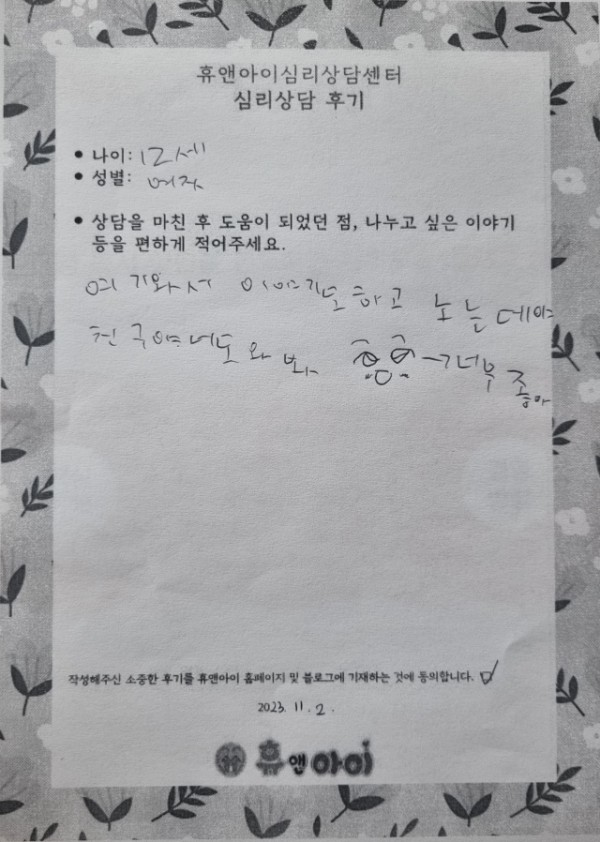 휴앤아이심리상담센터
심리상담 후기
• 나이: 12세
• 성별: 여자
• 상담을 마친 후 도움이 되었던 점, 나누고 싶은 이야기
등을 편하게 적어주세요.
여기와서 이야기도 하고 노는데야
천국야 너도 와봐 너무 좋아
작성해주신 소중한 후기를 휴앤아이 홈페이지 및 블로그에 기재하는 것에 동의합니다.
2023. 11. 2.
휴앤아이